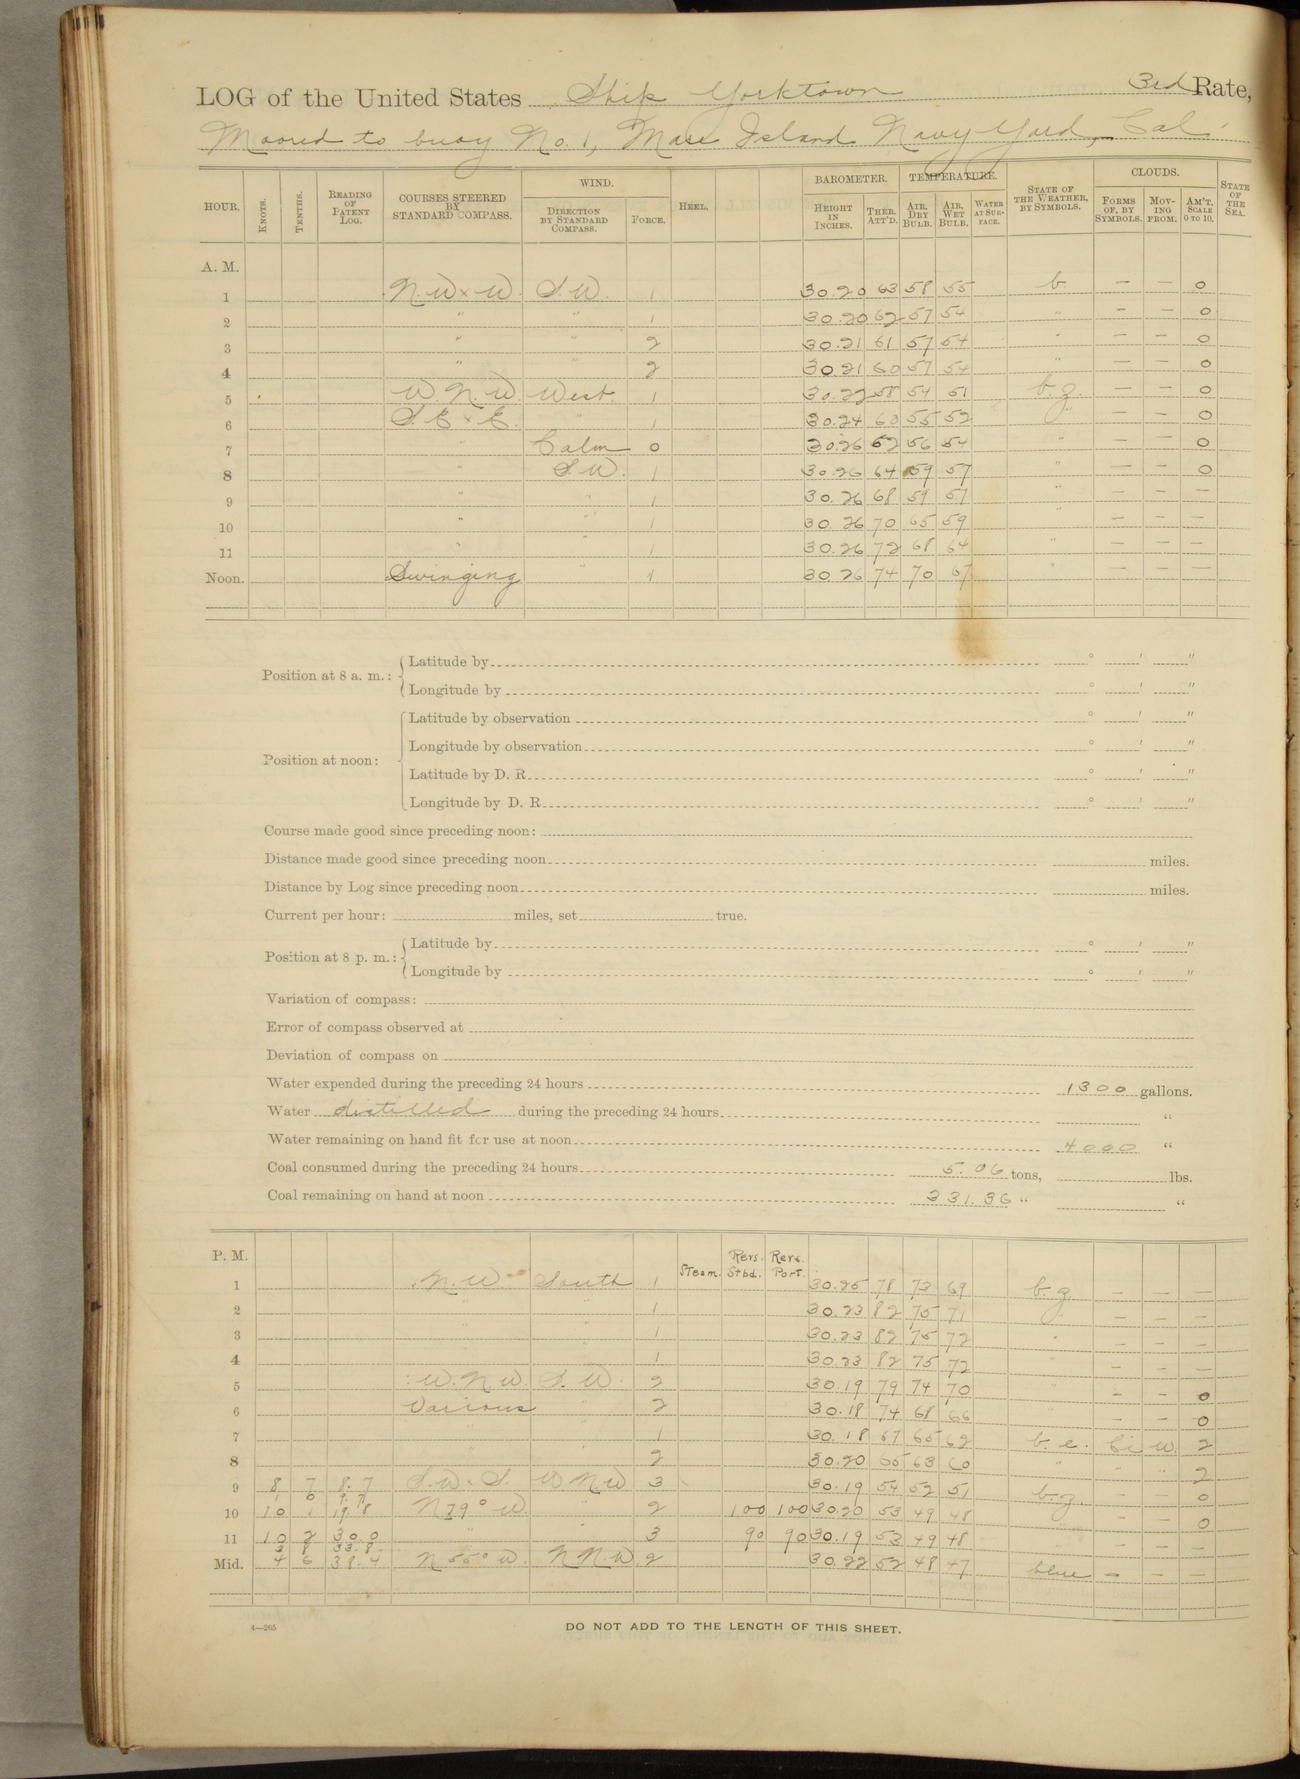 LOG of the United States Ship Yorktown 3rd Rate,
Moored to buoy No. 1, Mare Island Navy Yard, Cal.
HOUR. KNOTS. TENTHS. READING OF PATENT LOG. COURSES STEERED BY STANDARD COMPASS. WIND. DIRECTION BY STANDARD COMPASS. FORCE. HEEL. BAROMETER. HEIGHT IN INCHES. THER. ATT'D. TEMPERATURE. AIR, DRY BULB. AIR, WET BULB. WATER AT SURFACE. STATE OF THE WEATHER, BY SYMBOLS. CLOUDS. FORMS OF, BY SYMBOLS. MOVING FROM. AM'T. SCALE 0 TO 10. STATE OF THE SEA.
A. M.
1 N.W x W. S.W. 1 30.20 63 58 55 b. — — 0
2 " " 1 30.20 62 57 54 " — — 0
3 " " 2 30.21 61 57 54 " — — 0
4 " " 2 30.21 60 57 54 " — — 0
5 W.N.W. West. 1 30.22 58 54 51 b.z. — — 0
6 S.E x E. " 1 30.24 60 55 52 " — — 0
7 " Calm 0 30.26 62 56 54 " — — 0
8 " S.W. 1 30.26 64 59 57 " — — 0
9 " " 1 30.26 68 59 57 " — — —
10 " " 1 30.26 70 65 59 " — — —
11 " " 1 30.26 72 68 64 " — — —
Noon. Swinging " 1 30.26 74 70 67 " — — —
Position at 8 a. m.: Latitude by ° ′ ″
Longitude by ° ′ ″
Position at noon: Latitude by observation ° ′ ″
Longitude by observation ° ′ ″
Latitude by D. R. ° ′ ″
Longitude by D. R. ° ′ ″
Course made good since preceding noon:
Distance made good since preceding noon miles.
Distance by Log since preceding noon miles.
Current per hour: miles, set true.
Position at 8 p. m.: Latitude by ° ′ ″
Longitude by ° ′ ″
Variation of compass:
Error of compass observed at
Deviation of compass on
Water expended during the preceding 24 hours 1300 gallons.
Water distilled during the preceding 24 hours "
Water remaining on hand fit for use at noon 4000 "
Coal consumed during the preceding 24 hours 5.06 tons, lbs.
Coal remaining on hand at noon 231.36 " "
P. M. Steam. Revs. Stbd. Revs. Port.
1 N.W. South 1 30.25 78 73 69 b.z. — — —
2 " " 1 30.23 82 75 71 " — — —
3 " " 1 30.23 82 75 72 " — — —
4 " " 1 30.23 82 75 72 " — — —
5 W.N.W. S.W. 2 30.19 79 74 70 " — — 0
6 Various " 2 30.18 74 68 66 " — — 0
7 " " 1 30.18 67 65 62 b.c. Ci W. 2
8 " " 2 30.20 65 63 60 " " " 2
9 8 7 8.7 S.W. S. W.N.W 3 30.19 54 52 51 b.z. — — 0
1 0 9.7
10 10 1 19.8 N 79° W " 2 100 100 30.20 53 49 48 " — — 0
11 10 2 30.0 " " 3 90 90 30.19 53 49 48 " — — —
3 8 33.8
Mid. 4 6 38.4 N 55° W. N.N.W. 2 30.22 52 48 47 blue — — —
4—265
DO NOT ADD TO THE LENGTH OF THIS SHEET.